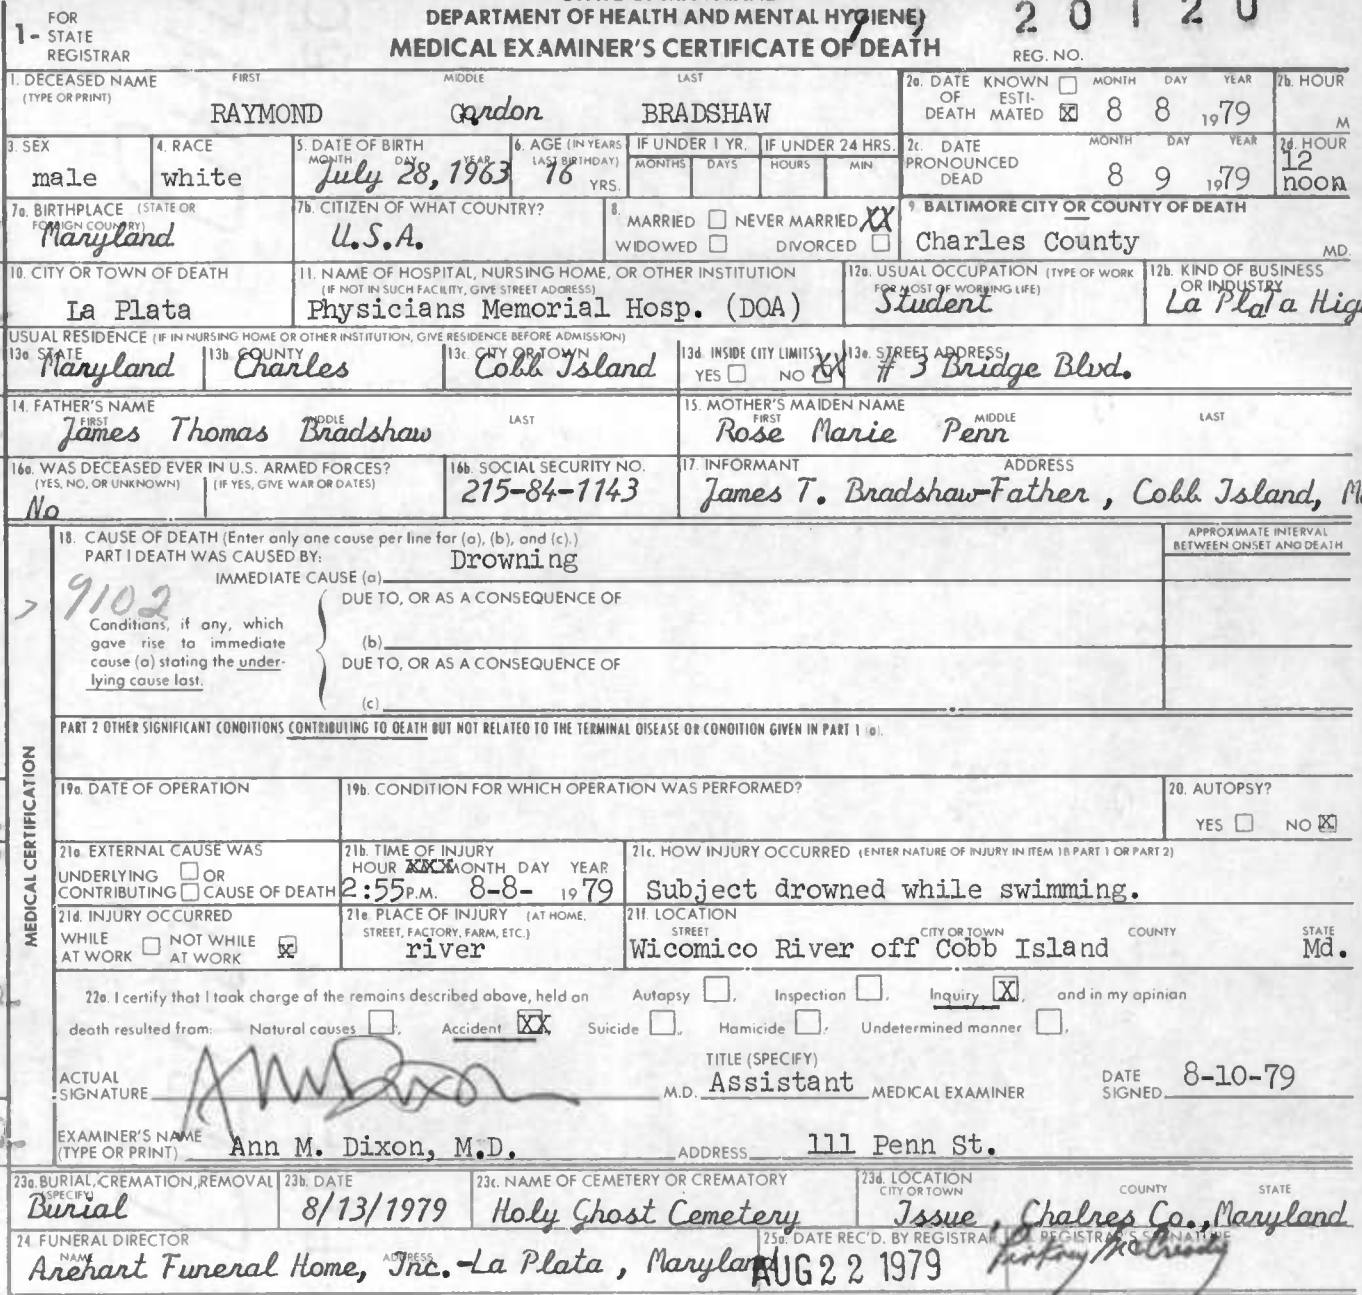 1- FOR STATE REGISTRAR
DEPARTMENT OF HEALTH AND MENTAL HYGIENE
MEDICAL EXAMINER'S CERTIFICATE OF DEATH
2 0 1 2 0
REG. NO.
1. DECEASED NAME (TYPE OR PRINT) FIRST MIDDLE LAST
RAYMOND Gordon BRADSHAW
2a. DATE OF DEATH KNOWN ☐ ESTIMATED ☒ MONTH DAY YEAR 8 8 1979
2b. HOUR M
3. SEX male
4. RACE white
5. DATE OF BIRTH MONTH DAY YEAR July 28, 1963
6. AGE (IN YEARS LAST BIRTHDAY) 16 YRS.
IF UNDER 1 YR. MONTHS DAYS
IF UNDER 24 HRS. HOURS MIN
2c. DATE PRONOUNCED DEAD MONTH DAY YEAR 8 9 1979
2d. HOUR 12 noon
7a. BIRTHPLACE (STATE OR FOREIGN COUNTRY) Maryland
7b. CITIZEN OF WHAT COUNTRY? U.S.A.
8. MARRIED ☐ NEVER MARRIED XX WIDOWED ☐ DIVORCED ☐
9. BALTIMORE CITY OR COUNTY OF DEATH Charles County MD.
10. CITY OR TOWN OF DEATH La Plata
11. NAME OF HOSPITAL, NURSING HOME, OR OTHER INSTITUTION (IF NOT IN SUCH FACILITY, GIVE STREET ADDRESS) Physicians Memorial Hosp. (DOA)
12a. USUAL OCCUPATION (TYPE OF WORK FOR MOST OF WORKING LIFE) Student
12b. KIND OF BUSINESS OR INDUSTRY La Plata Hig
USUAL RESIDENCE (IF IN NURSING HOME OR OTHER INSTITUTION, GIVE RESIDENCE BEFORE ADMISSION)
13a. STATE Maryland
13b. COUNTY Charles
13c. CITY OR TOWN Cobb Island
13d. INSIDE CITY LIMITS? YES ☐ NO XX
13e. STREET ADDRESS # 3 Bridge Blvd.
14. FATHER'S NAME FIRST MIDDLE LAST James Thomas Bradshaw
15. MOTHER'S MAIDEN NAME FIRST MIDDLE LAST Rose Marie Penn
16a. WAS DECEASED EVER IN U.S. ARMED FORCES? (YES, NO, OR UNKNOWN) (IF YES, GIVE WAR OR DATES) No
16b. SOCIAL SECURITY NO. 215-84-1143
17. INFORMANT ADDRESS James T. Bradshaw-Father, Cobb Island, M
18. CAUSE OF DEATH (Enter only one cause per line for (a), (b), and (c).)
APPROXIMATE INTERVAL BETWEEN ONSET AND DEATH
PART I DEATH WAS CAUSED BY:
IMMEDIATE CAUSE (a) Drowning
9102
DUE TO, OR AS A CONSEQUENCE OF
Conditions, if any, which gave rise to immediate cause (a) stating the underlying cause last.
(b)
DUE TO, OR AS A CONSEQUENCE OF
(c)
PART 2 OTHER SIGNIFICANT CONDITIONS CONTRIBUTING TO DEATH BUT NOT RELATED TO THE TERMINAL DISEASE OR CONDITION GIVEN IN PART 1 (a).
MEDICAL CERTIFICATION
19a. DATE OF OPERATION
19b. CONDITION FOR WHICH OPERATION WAS PERFORMED?
20. AUTOPSY? YES ☐ NO ☒
21a. EXTERNAL CAUSE WAS UNDERLYING ☐ OR CONTRIBUTING ☐ CAUSE OF DEATH
21b. TIME OF INJURY HOUR XXX MONTH DAY YEAR 2:55 P.M. 8-8- 1979
21c. HOW INJURY OCCURRED (ENTER NATURE OF INJURY IN ITEM 18 PART 1 OR PART 2) Subject drowned while swimming.
21d. INJURY OCCURRED WHILE AT WORK ☐ NOT WHILE AT WORK ☒
21e. PLACE OF INJURY (AT HOME, STREET, FACTORY, FARM, ETC.) river
21f. LOCATION STREET CITY OR TOWN COUNTY STATE Wicomico River off Cobb Island Md.
22a. I certify that I took charge of the remains described above, held an Autopsy ☐, Inspection ☐, Inquiry ☒, and in my opinion
death resulted from: Natural causes ☐, Accident XX, Suicide ☐, Homicide ☐, Undetermined manner ☐,
ACTUAL SIGNATURE Ann M Dixon M.D.
TITLE (SPECIFY) Assistant MEDICAL EXAMINER
DATE SIGNED 8-10-79
EXAMINER'S NAME (TYPE OR PRINT) Ann M. Dixon, M.D.
ADDRESS 111 Penn St.
23a. BURIAL, CREMATION, REMOVAL (SPECIFY) Burial
23b. DATE 8/13/1979
23c. NAME OF CEMETERY OR CREMATORY Holy Ghost Cemetery
23d. LOCATION CITY OR TOWN COUNTY STATE Issue, Chalres Co., Maryland
24. FUNERAL DIRECTOR NAME ADDRESS Arehart Funeral Home, Inc.-La Plata, Maryland
25a. DATE REC'D. BY REGISTRAR AUG 22 1979
REGISTRAR'S SIGNATURE